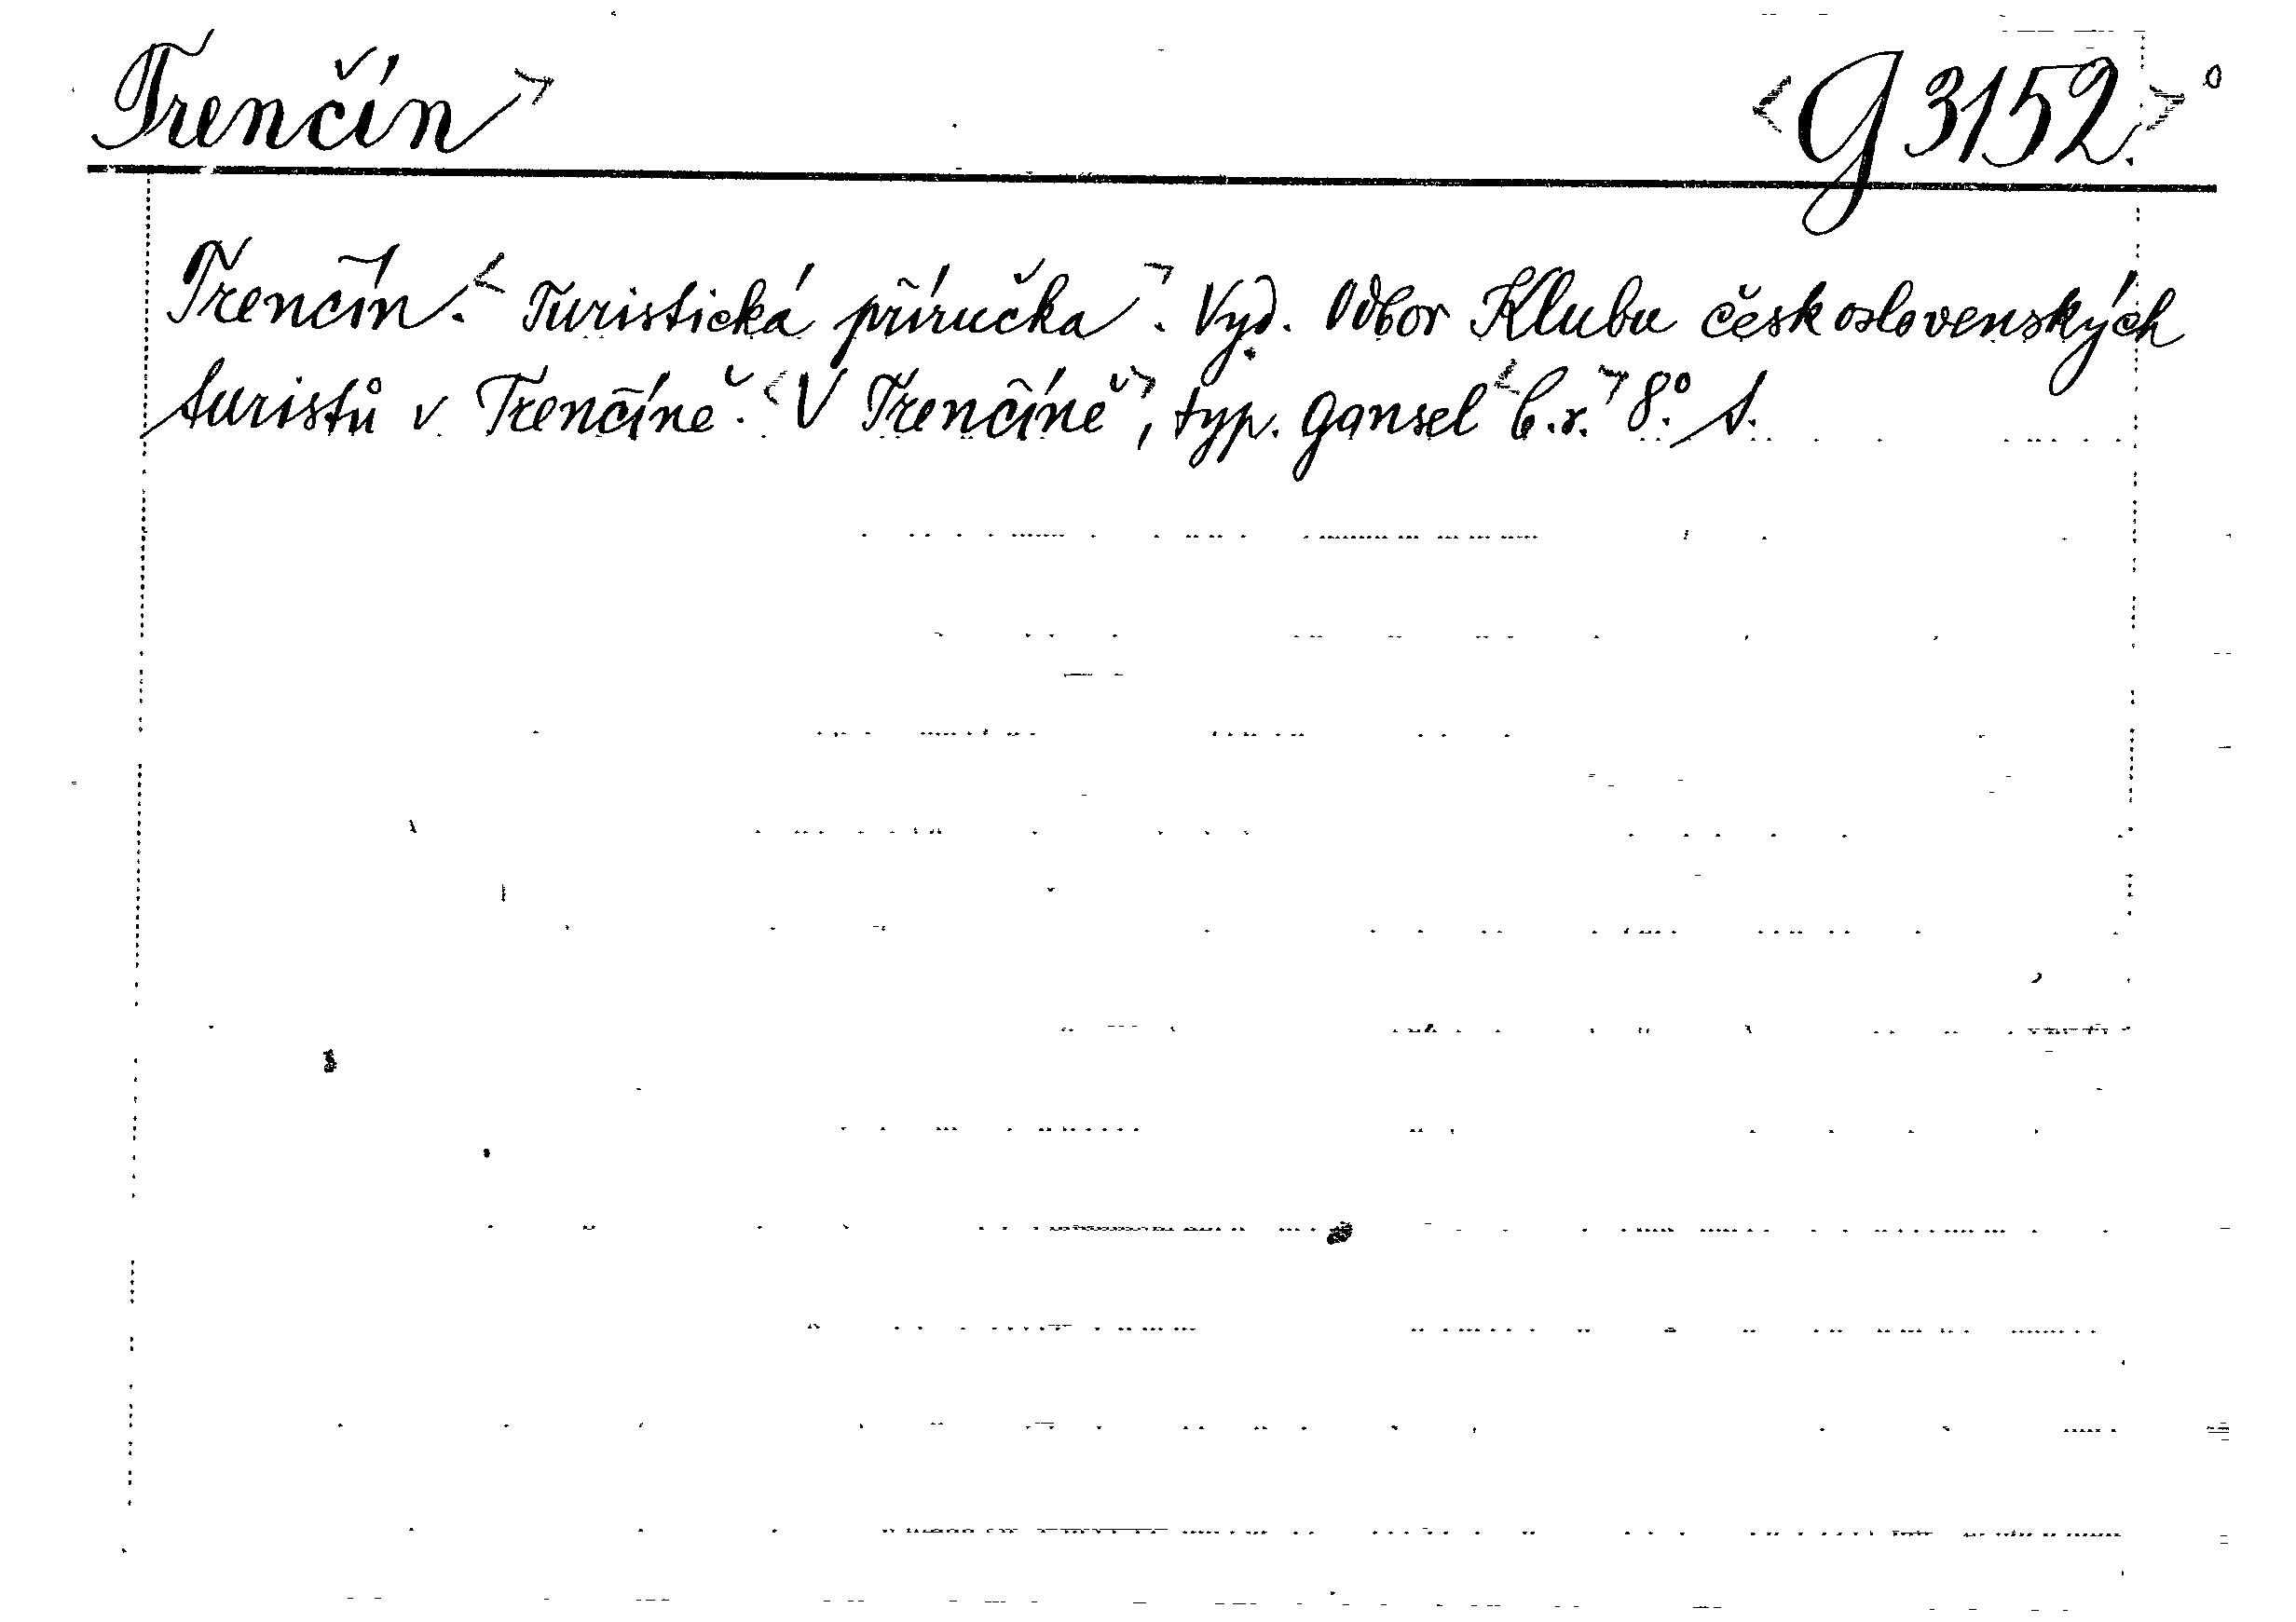 Trenčín G 3152.
Trenčín. Turistická příručka. Vyd. Odbor Klubu československých
turistů v Trenčíně. V Trenčíně, typ. Gansel b.r. 8° S.